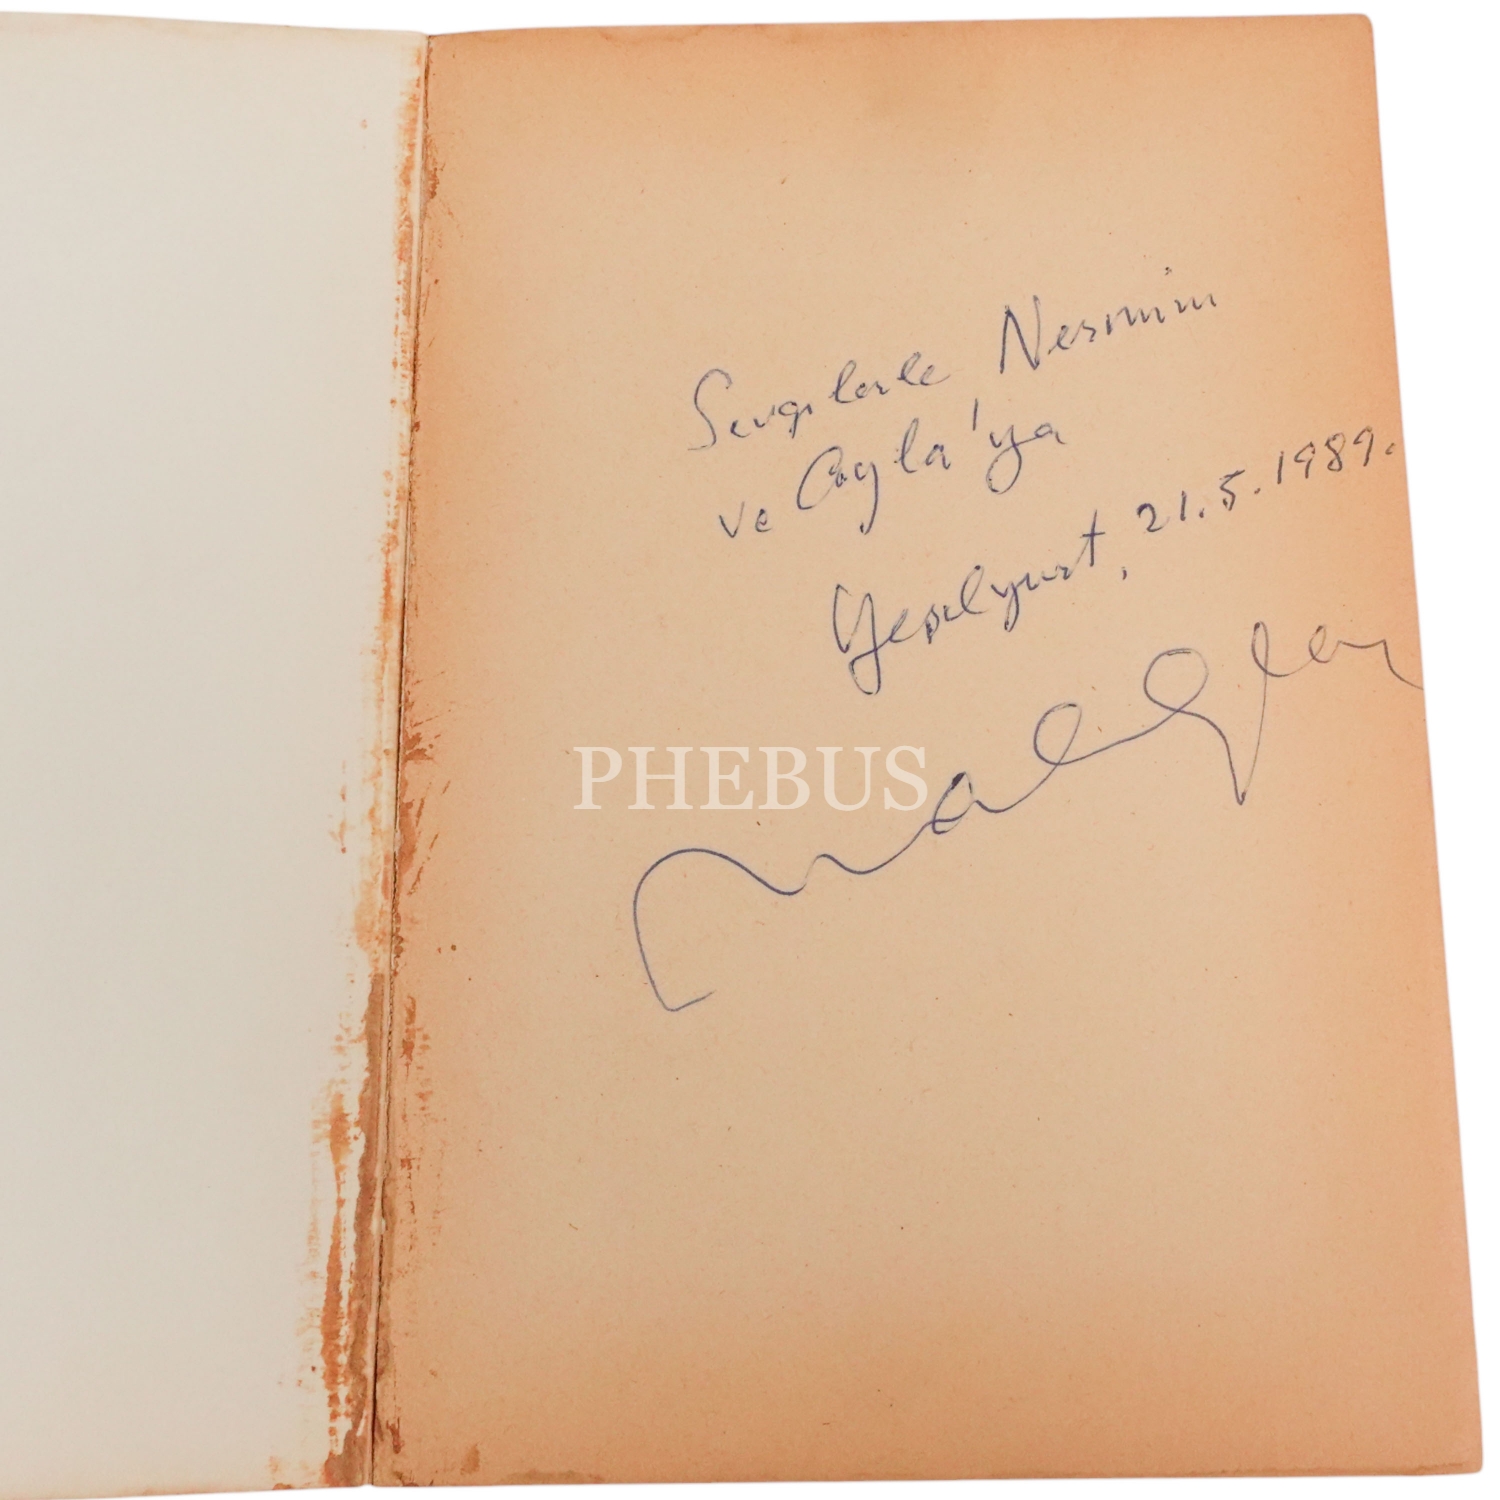 Sevgilerle Nermin
ve Çağla'ya
Yeşilyurt, 21.5.1989.
PHEBUS